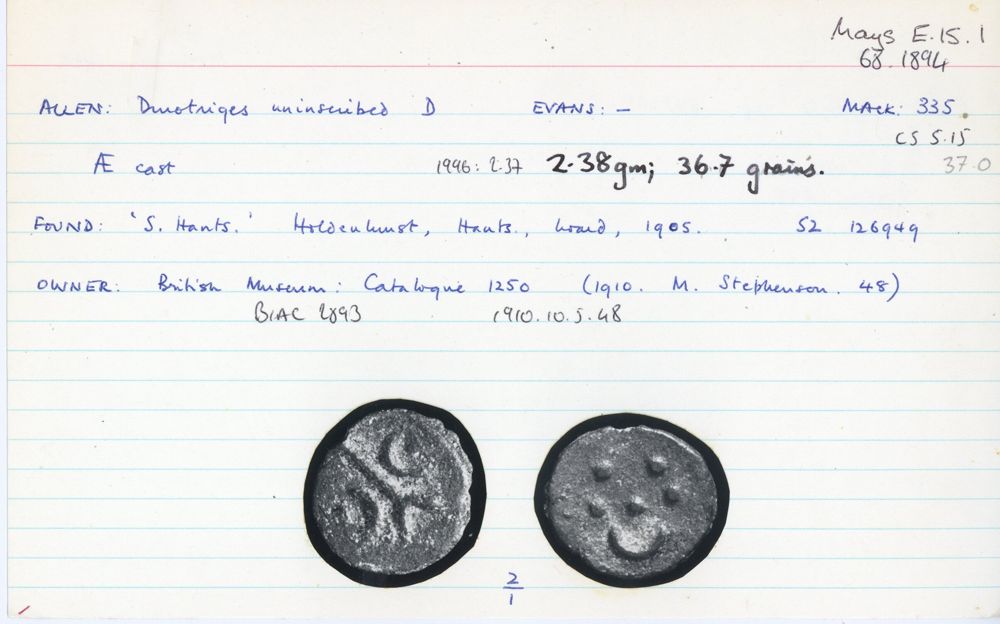 Mays E.15.1
68.1894
ALLEN: Durotriges uninscribed D EVANS: – MACK: 335.
CS S.15
Æ cast 1996: 2.37 2.38gm; 36.7 grains. 37.0
FOUND: 'S. Hants.' Holdenhurst, Hants., hoard, 1905. SZ 126949
OWNER: British Museum: Catalogue 1250 (1910. M. Stephenson. 48)
BIAC 2893 1910.10.5.48
2
1